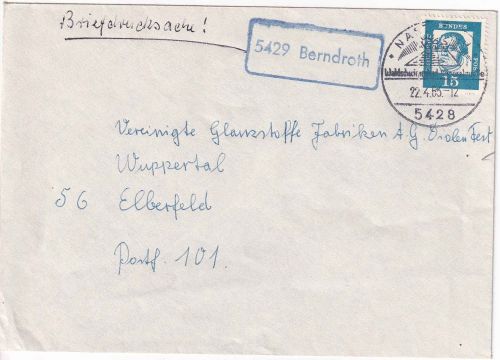 Briefdrucksache!
5429 Berndroth
NAS
22.4.65.-12
5428
BUNDES
15
Vereinigte Glanzstoffe Fabriken A.G.
Wuppertal
56 Elberfeld
Postf. 101.